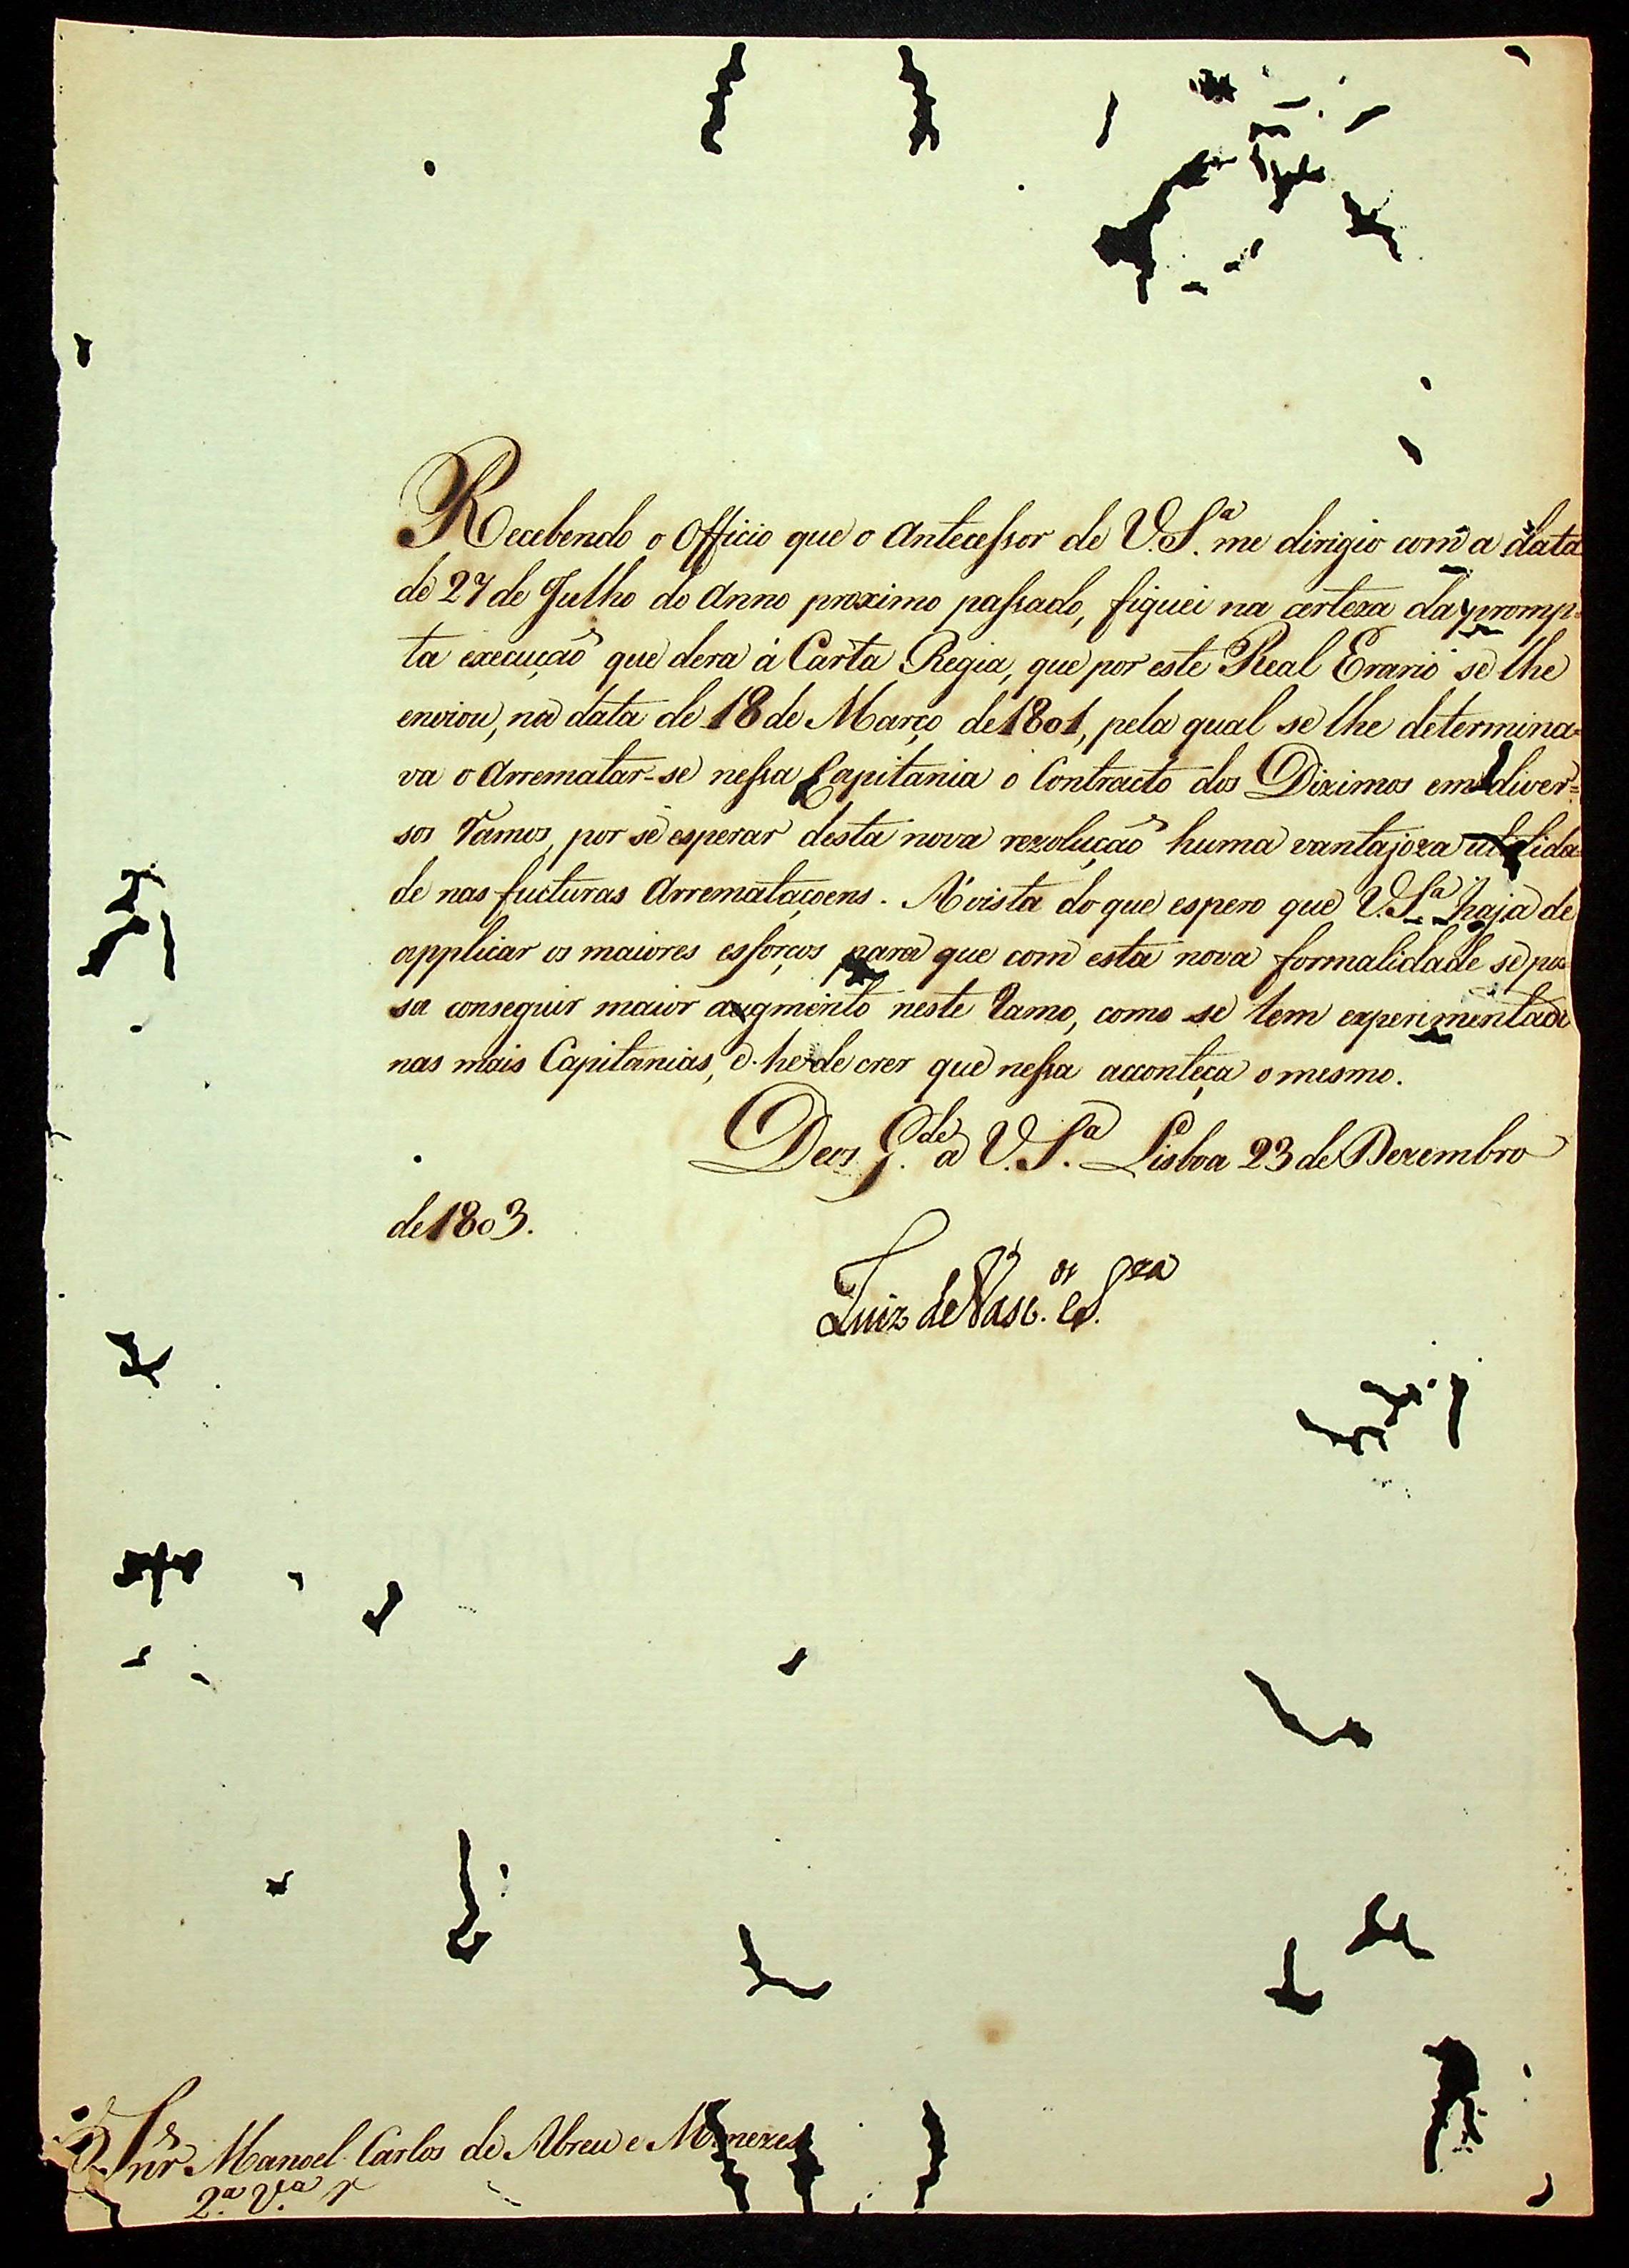 Recebendo o Officio que o Antecessor de V. S.ª me dirigio com a data
de 27 de Julho do Anno proximo passado, fiquei na certeza da promp=
ta execução que dera á Carta Regia, que por este Real Erario se lhe
enviou, na data de 18 de Março de 1801, pela qual se lhe determina=
va o Arrematar-se nessa Capitania o Contracto dos Dizimos em diver=
sos ramos, por se esperar desta nova rezolução huma vantajoza utilida
de nas fucturas Arremataçoens. A' vista do que espero que V. S.ª haja de
applicar os maiores esforços para que com esta nova formalidade se pos
sa conseguir maior augmento neste ramo, como se tem experimentado
nas mais Capitanias, e he de crer que nessa aconteça o mesmo.
Deos G.de a V. S.ª Lisboa 23 de Dezembro
de 1803.
Luiz de Vasc.os e S.za
Snr Manoel Carlos de Abreu e Menezes
2.ª V.ª